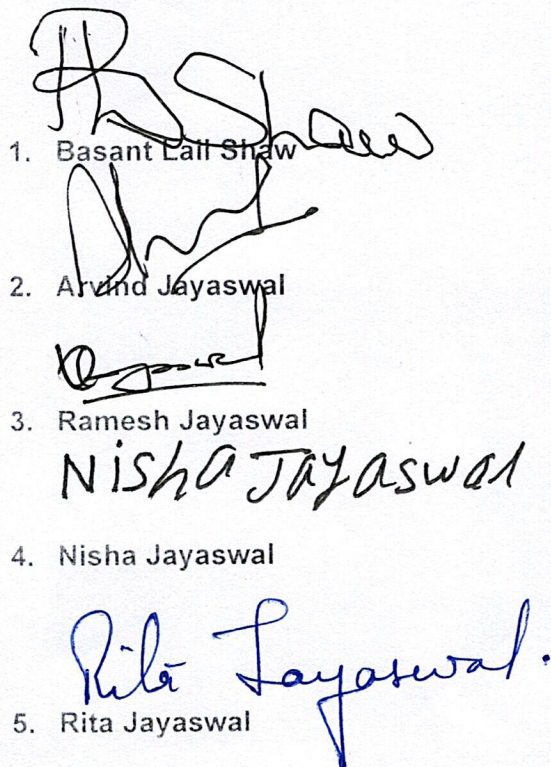 Shaw
1. Basant Lall Shaw
2. Arvind Jayaswal
3. Ramesh Jayaswal
Nisha Jayaswal
4. Nisha Jayaswal
Rita Jayaswal.
5. Rita Jayaswal